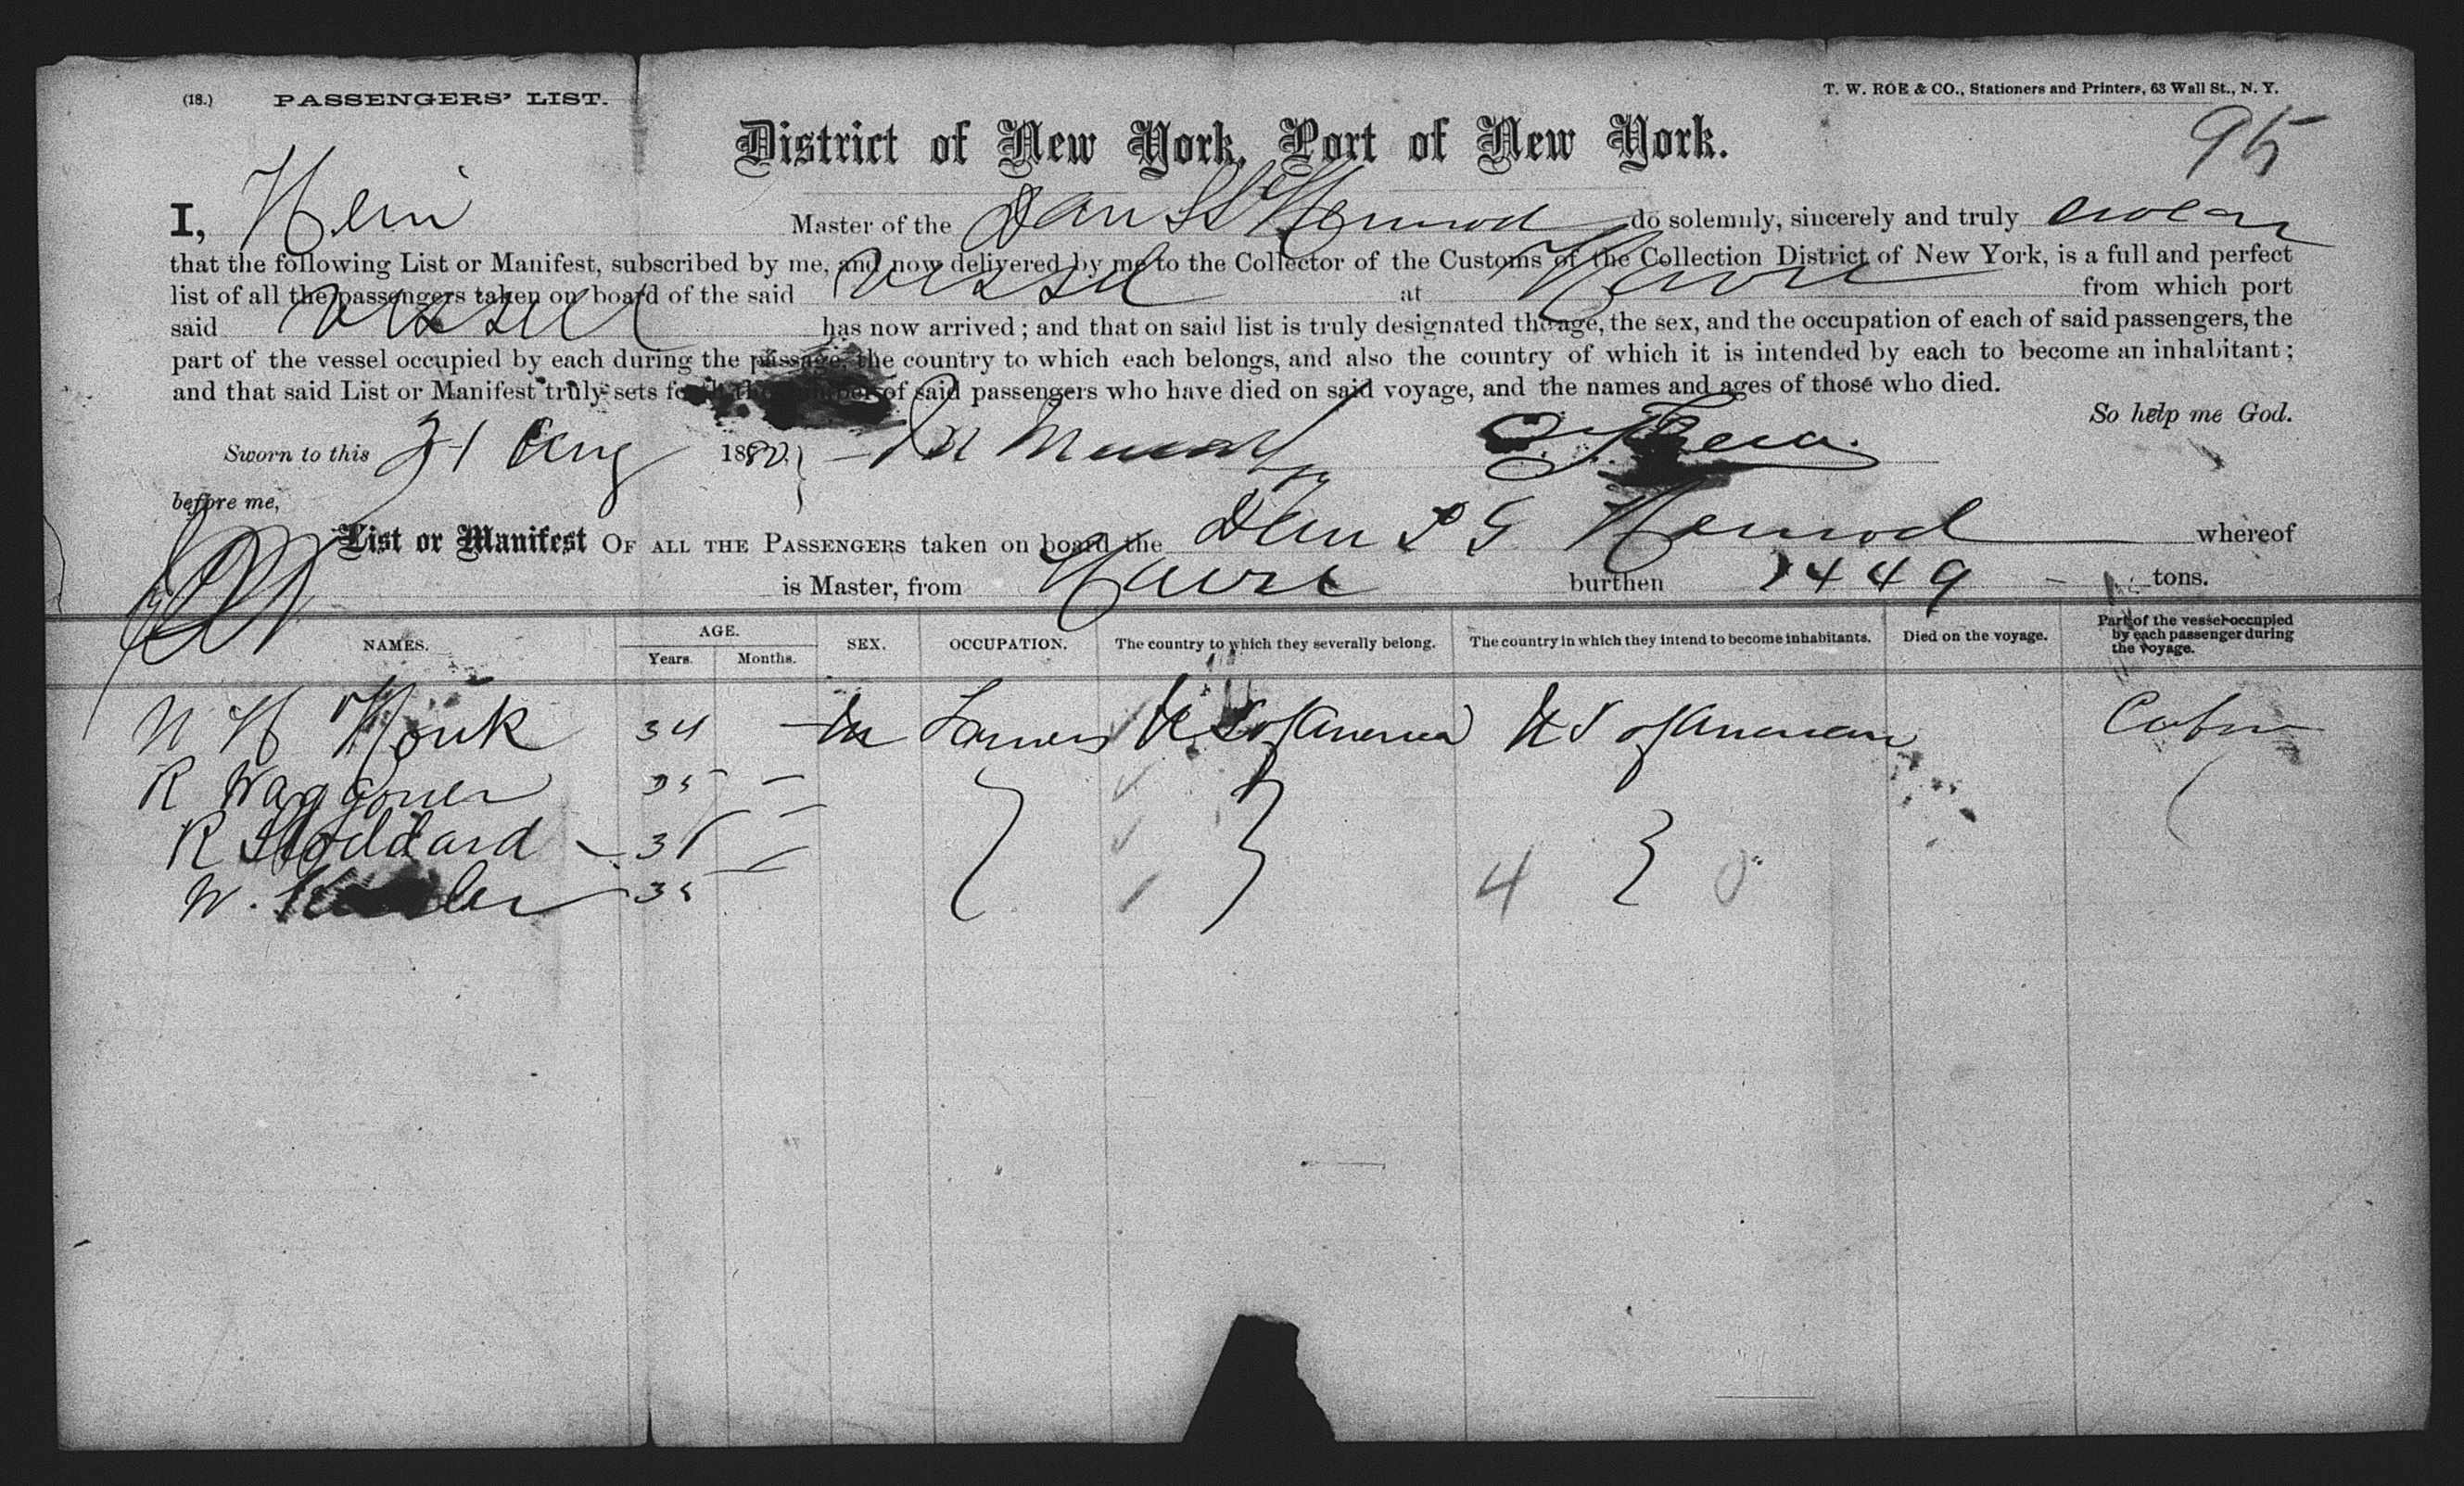 (18.) PASSENGERS' LIST.
T. W. ROE & CO., Stationers and Printers, 63 Wall St., N. Y.
95
District of New York, Port of New York.
I, Hein Master of the Dan SS Hermod do solemnly, sincerely and truly swear
that the following List or Manifest, subscribed by me, and now delivered by me to the Collector of the Customs of the Collection District of New York, is a full and perfect
list of all the passengers taken on board of the said vessel at Havre from which port
said vessel has now arrived; and that on said list is truly designated the age, the sex, and the occupation of each of said passengers, the
part of the vessel occupied by each during the passage, the country to which each belongs, and also the country of which it is intended by each to become an inhabitant;
and that said List or Manifest truly sets forth the number of said passengers who have died on said voyage, and the names and ages of those who died.
So help me God.
Sworn to this 21 Aug 1880.
before me,
List or Manifest OF ALL THE PASSENGERS taken on board the Dan S S Hermod whereof
is Master, from Havre burthen 1449 tons.
NAMES. AGE. Years. Months. SEX. OCCUPATION. The country to which they severally belong. The country in which they intend to become inhabitants. Died on the voyage. Part of the vessel occupied by each passenger during the voyage.
N H Houk 34 - m Farmers U S of America U S of American Cabin
R Waggoner 35 -
R Stoddard - 31 -
W. 35
4 0